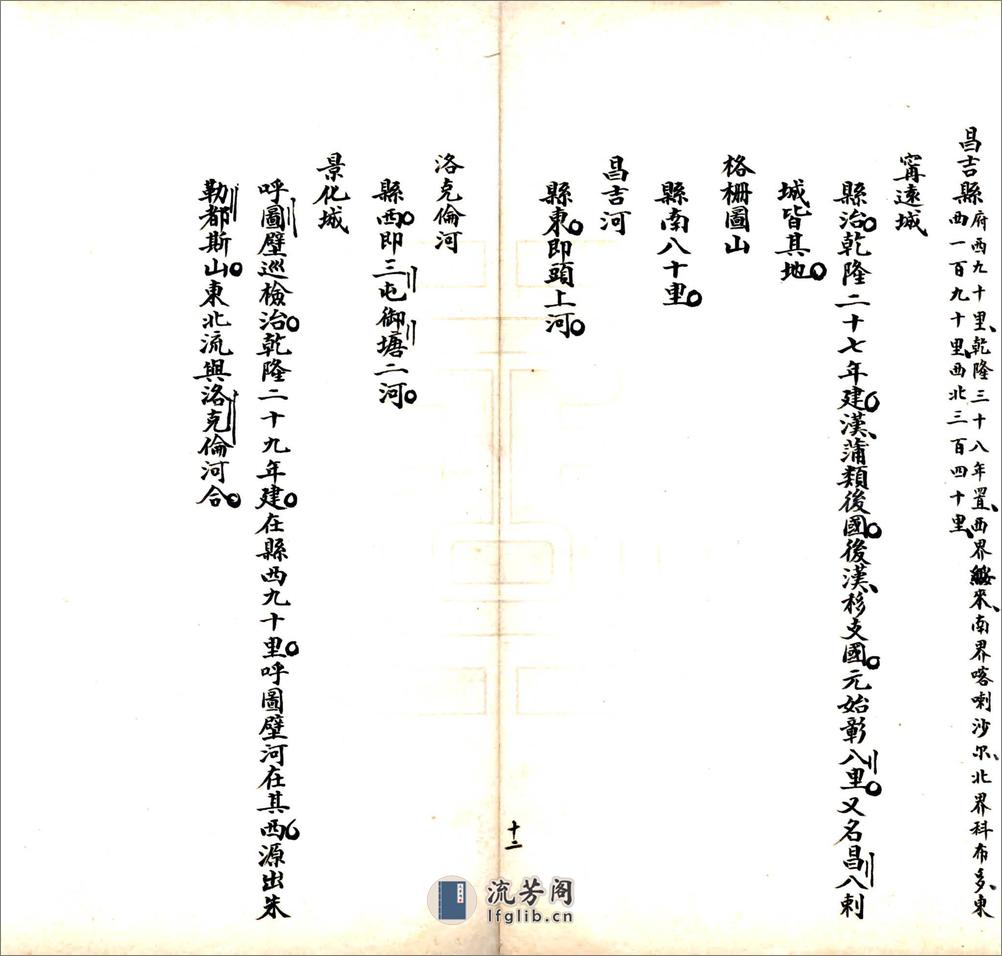 昌吉縣府西九十里乾隆三十八年置西界綏來南界喀喇沙尔北界科布多東
西一百九十里西北三百四十里
甯遠城
縣治乾隆二十七年建漢蒲類後國後漢移支國元始彰八里又名昌八剌
城皆其地
格柵圖山
縣南八十里
昌吉河
縣東即頭上河
十二
洛克倫河
縣西即三屯御塘二河
景化城
呼圖壁巡檢治乾隆二十九年建在縣西九十里呼圖壁河在其西源出朱
勒都斯山東北流與洛克倫河合
流芳阁
lfglib.cn